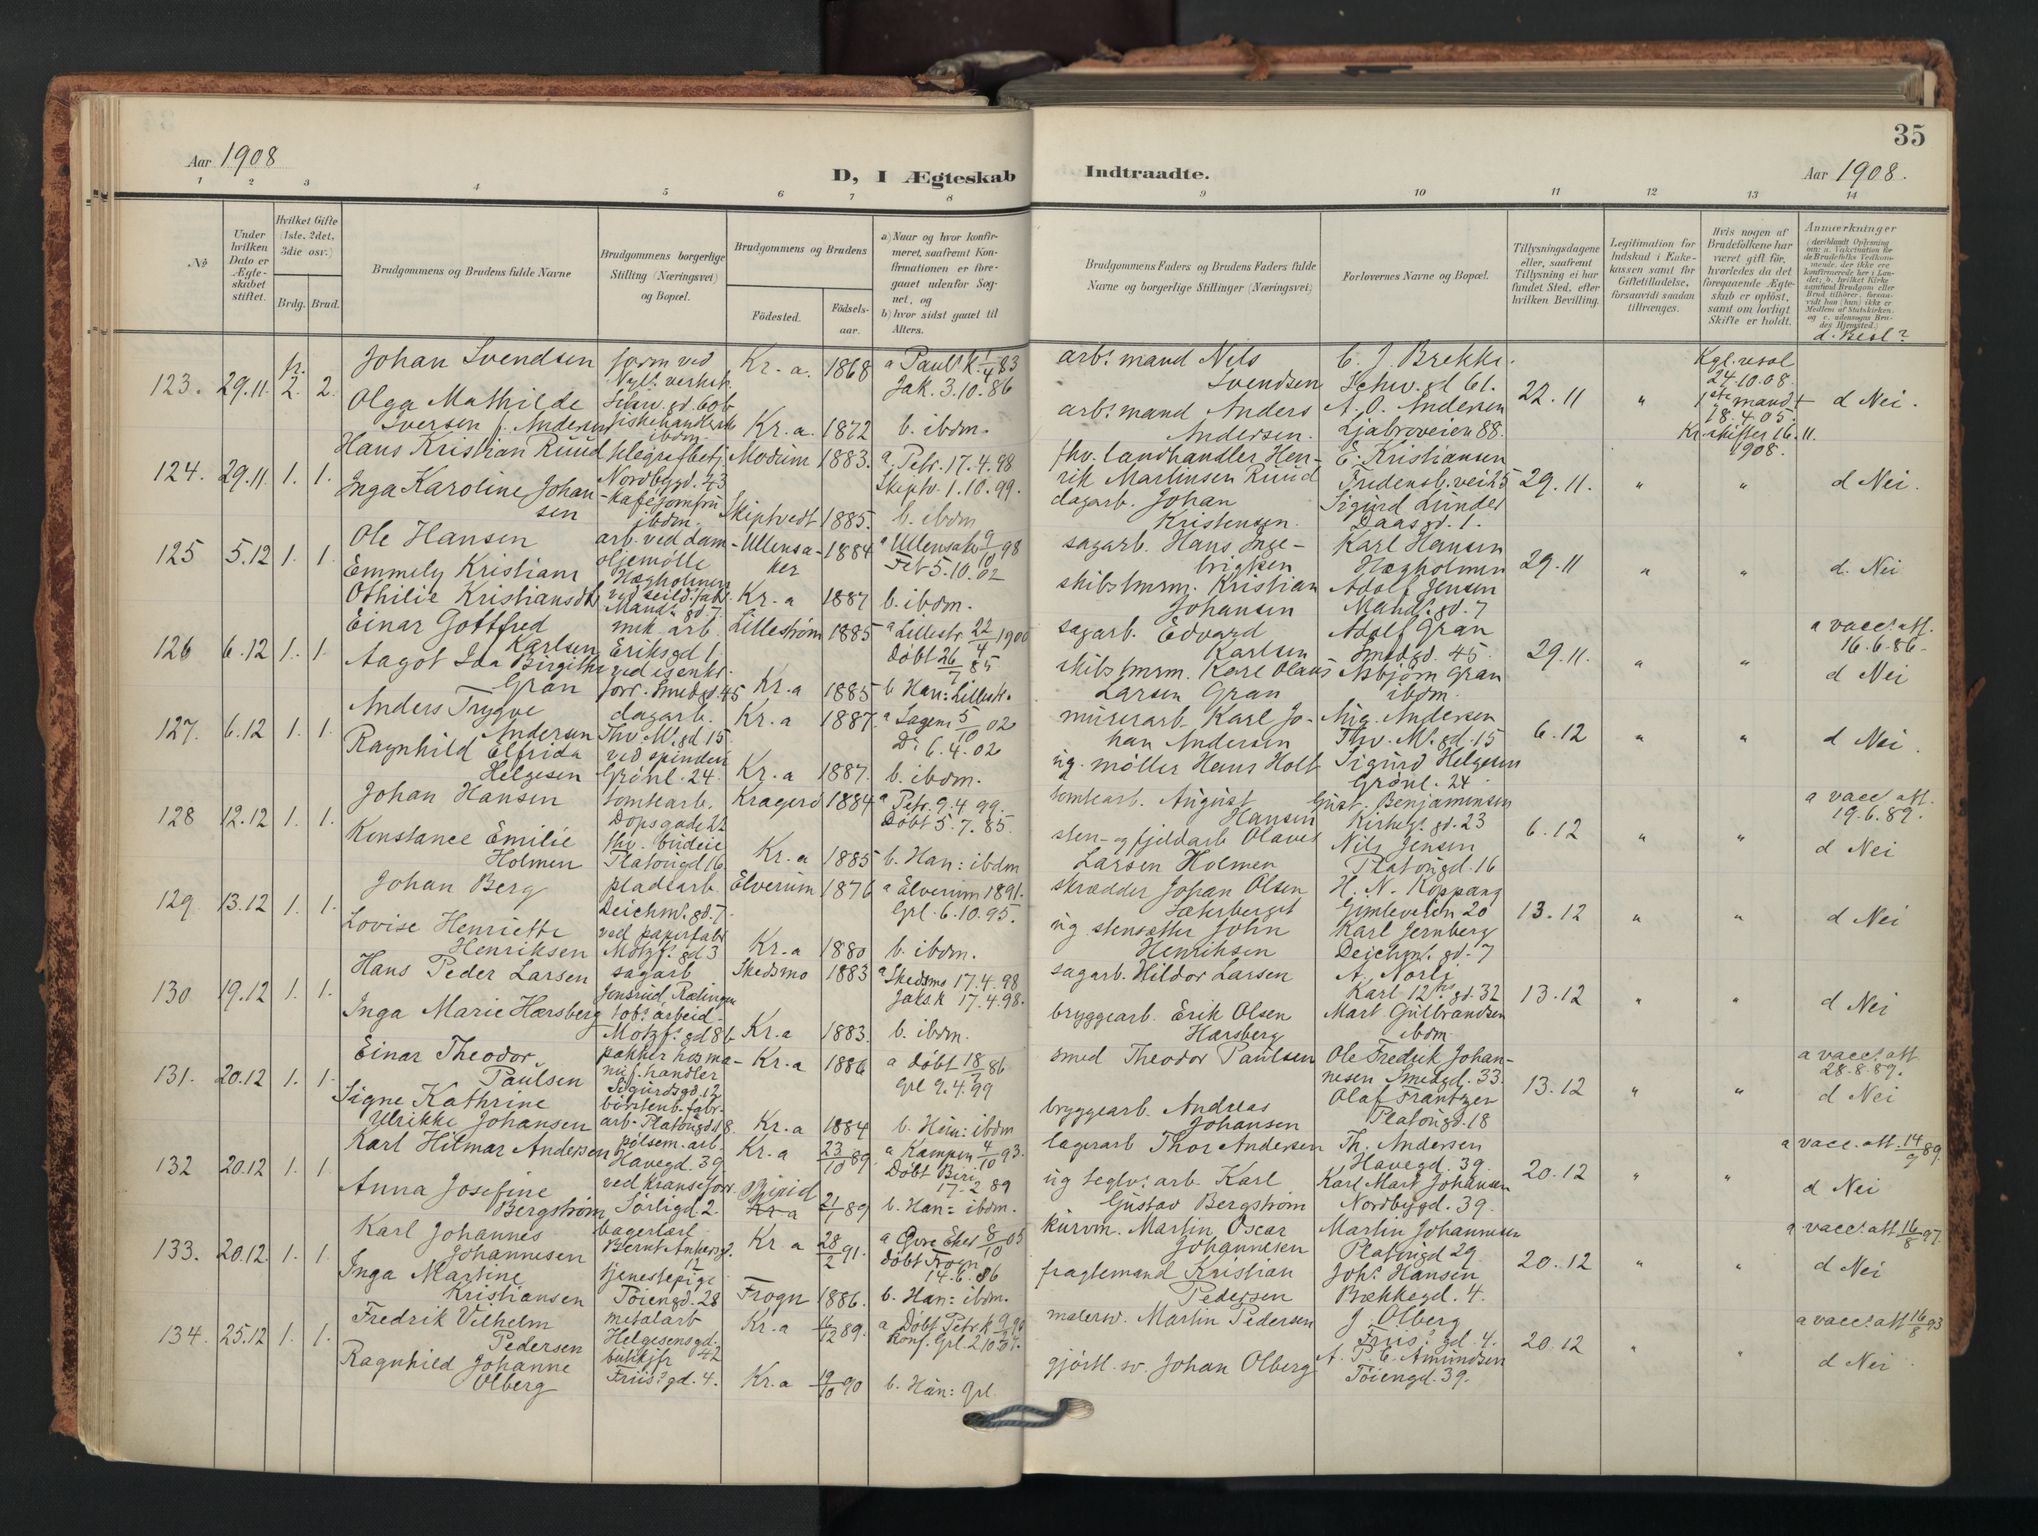 Aar 1908
D, I Ægteskab
Indtraadte.
35
Aar 1908.
1 2 3 4 5 6 7 8 9 10 11 12 13 14
№
Under hvilken Dato er Ægteskabet stiftet.
Hvilket Gifte (1ste, 2det, 3die osv.)
Brdg. Brud.
Brudgommens og Brudens fulde Navne
Brudgommens borgerlige Stilling (Næringsvei) og Bopæl.
Brudgommens og Brudens
Födested.
Födselsaar.
a) Naar og hvor konfirmeret, saafremt Konfirmationen er foregaaet udenfor Sognet, og
b) hvor sidst gaaet til Alters.
Brudgommens Faders og Brudens Faders fulde Navne og borgerlige Stillinger (Næringsvei)
Forlovernes Navne og Bopæl.
Tillysningsdagene eller, saafremt Tillysning ei har fundet Sted, efter hvilken Bevilling.
Legitimation for Indskud i Enkekassen samt for Giftetilladelse, forsaavidt saadan tiltrænges.
Hvis nogen af Brudefolkene har været gift för, hvorledes da det foregaaende Ægteskab er oplöst, samt om lovligt Skifte er holdt.
Anmærkninger
(deriblandt Oplysning om: a. Vaksination for de Brudefolks Vedkommende, der ikke ere konfirmerede her i Landet; b. hvilket Kirkesamfund Brudgom eller Brud tilhörer, forsaavidt han (hun) ikke er Medlem af Statskirken, og c. udensogns Brudes Hjemsted.)
d. Besl?
123. 29.11. 2. 2.
Johan Svendsen
form ved
Kr.a. 1868
a Paulsk. 1/4 83
Jak. 3.10.86
Olga Mathilde
Iversen f. Andersen
ibdm.
Kr.a. 1872
b. ibdm.
arb. mand Nils
Svendsen
arb. mand Anders
Andersen.
C. J. Brekke.
Schw. gd 61.
A. O. Andersen
Ljabroveien 88.
22.11 "
Kgl. resol
24.10.08.
1ste mand +
18.4.05
Kr. skifter 16.11.
1908.
d Nei.
124. 29.11. 1. 1.
Hans Kristian Ruud
telegrafbetj.
Nordbygd. 43
Modum 1883.
a Petr. 17.4.98
Skiptv. 1.10.99.
Inga Karoline Johansen
kafejomfru
ibdm.
Skiptvedt 1885.
b. ibdm
fhv. landhandler Henrik
Martinsen Ruud
dagarb. Johan
Kristensen.
E. Kristiansen
Fredensb.vei 25
Sigurd Lunder
Daasgd. 1.
29.11. " "
d Nei.
125 5.12 1. 1.
Ole Hansen
arb. ved dampoljemølle
Hægholmen
Ullensaker 1884
a Ullensaker 9/10 98
Fet 5.10.02
Emmely Kristiane
Othilie Kristiansdtr
Mands gd. 7
Kr.a 1887
b. ibdm.
sagarb. Hans Ingebrigtsen
skibstmrm. Kristian
Johansen
Karl Hansen
Hægholmen
Adolf Jensen
Mands. gd. 7
29.11 " "
d. Nei
126 6.12 1. 1.
Einar Gottfred
Karlsen
mek. arb.
Eriksgd 1.
Lillestrøm 1885
a Lillestr. 22/4 1900
Døbt 26/7 85
Aagot Ida Birgithe
Gran
Smedgd. 45
Kr.a 1885
b Han: Lillestr.
sagarb. Edvard
Karlsen
skibstmrm. Karl Olaus
Larsen Gran
Adolf Gran
Smedgd. 45.
Asbjørn Gran
ibdm.
29.11. " "
a vacc. att.
16.6.86.
d Nei
127. 6.12 1. 1.
Anders Trygve
Andersen
dagarb.
Thv. M. gd 15.
Kr.a 1887.
a Sagene 5/10 02
Do 6.4.02
Ragnhild Elfrida
Helgesen
ved spinderi
Grønl. 24.
Kr.a 1887.
b. ibdm.
murerarb. Karl Johan
Andersen
ug. møller Hans Holt
Aug. Andersen
Thv. M. gd. 15
Sigurd Helgesen
Grønl. 24
6.12 " "
d Nei.
128 12.12 1. 1.
Johan Hansen
tomtearb.
Dopsgade 22
Kragerö 1884
a Petr. 9.4.99.
Døbt 5.7.85.
Konstance Emilie
Holmen
fhv. budeie
Platougd 16
Kr.a 1885
b. Han: ibdm
tomtearb. August
Hansen
sten- og fjeldarb Olaves
Larsen Holmen
Gust. Benjaminsen
Kirkeg. gd. 23
Nils Jensen
Platougd. 16
6.12 " "
a vacc. att.
19.6.89.
d Nei
129. 13.12 1. 1.
Johan Berg
pladsarb.
Deichm. gd. 7.
Elverum 1876
a Elverum 1891.
Grl. 6.10.95.
Lovise Henriette
Henriksen
ved papirfabr
Motzf. gd 3
Kr.a 1880
b. ibdm.
skrædder Johan Olsen
Sæterberget
ug stensætter John
Henriksen
H. N. Koppang
Gimleveien 20
Karl Jernberg
Deichm. gd. 7
13.12 " "
d Nei
130 19.12 1. 1.
Hans Peder Larsen
sagarb
Jonsrud, Rælingen
Skedsmo 1883
a Skedsmo 17.4.98
Jaksk 17.4.98.
Inga Marie Hærsberg
tobs. arbeid.
Motzfs. gd 8b
Kr.a 1883.
b. ibdm.
sagarb. Hildor Larsen
bryggearb. Erik Olsen
Hærsberg
A. Norli
Karl 12tes gd. 32
Mart. Gulbrandsen
ibdm.
13.12 " "
d Nei
131. 20.12 1. 1.
Einar Theodor
Paulsen
pakker hos manuf.handler
Sigurdsgd. 12
Kr.a 1886
a Døbt 18/7 86
Grl 9.4.99
Signe Kathrine
Ulrikke Johansen
børstenb. fabr.
arb. Platougd 18.
Kr.a 1884
b. Han: ibdm
smed Theodor Paulsen
bryggearb. Andreas
Johansen
Ole Fredrik Johannesen
Smedgd. 33.
Olaf Frantzen
Platougd. 18
13.12 " "
a vacc. att
28.8.89.
d Nei
132 20.12 1. 1.
Karl Hilmar Andersen
pølsem. arb.
Havegd. 39
Kr.a 23/10 89.
a Kampen 4/10 93.
Døbt Biri
17.2.89
Anna Josefine
Bergstrøm
ved kranseforr.
Sørligd 2.
Kr.a 21/1 89
b. Han: ibdm.
lagerarb Thor Andersen
ug teglv. arb. Karl
Gustav Bergstrøm
Th. Andersen
Havegd. 39.
Karl Mart Johansen
Nordbygd. 39.
20.12 " "
a vacc. att. 14/9 89.
d Nei
133. 20.12. 1. 1.
Karl Johannes
Johannesen
bagerlærl
Bernt Ankersgd.
12
Kr a 28/2 91.
a Øvre Eker 8/10 05
Døbt Frogn
14.6.86
Inga Martine
Kristiansen
tjenestepige
Tøiengd. 28
Frogn 1886.
b. Han: ibdm.
kurvm. Martin Oscar
Johannesen
fragtemand Kristian
Pedersen
Martin Johannesen
Platougd 29.
Johs. Hansen
Bækkegd. 4.
20.12 " "
a vacc. att 16/8 97.
d Nei
134. 25.12 1. 1.
Fredrik Vilhelm
Pedersen
metalarb
Helgesensgd.
42
Kr.a 16/12 89.
a Døbt Petr.k
Konf. Grl. 2.10.04.
Ragnhild Johanne
Olberg
butikjfr
Friis' gd. 4.
Kr.a 19/10 90
b. Han: Grl.
malersv. Martin Pedersen
gjørtl. sv. Johan Olberg
J Olberg
Friis' gd. 4.
A. P. C. Amundsen
Tøiengd. 39.
20.12 " "
a vacc. att 16/8 93
d Nei